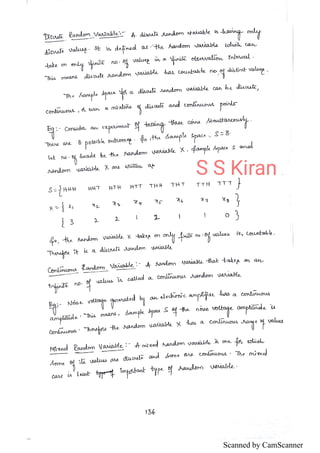 Discrete Random Variable:- A discrete random variable is having only
discrete values. It is defined as "the random variable which can
take on only finite no. of values in a finite observation interval.
This means discrete random variable has countable no of distinct values.
The sample space for a discrete random variable can be discrete,
continuous, or even a mixture of discrete and continuous points
Eg:- Consider an experiment of tossing three coins simultaneously.
There are 8 possible outcomes. So, the sample space, S = 8.
Let no. of heads be the random variable X, Sample space S and
random variable X are written as
S S Kiran
S = { HHH HHT HTH HTT THH THT TTH TTT }
X = { x1 x2 x3 x4 x5 x6 x7 x8 }
{ 3 2 2 1 2 1 1 0 }
So, the random variable X takes on only finite no. of values ie, countable.
Therefore it is a discrete random variable
Continuous Random Variable:- A random variable that takes on an
Infinite no. of values is called a continuous random variable.
Eg:- Noise voltage generated by an electronic amplifier has a continuous
amplitude. This means, Sample space S of the noise voltage amplitude is
continuous. Therefore the random variable X has a continuous range of values
Mixed Random Variable:- A mixed random variable is one for which
some of its values are discrete and some are continuous. The mixed
case is least important type of random variable.
134
Scanned by CamScanner